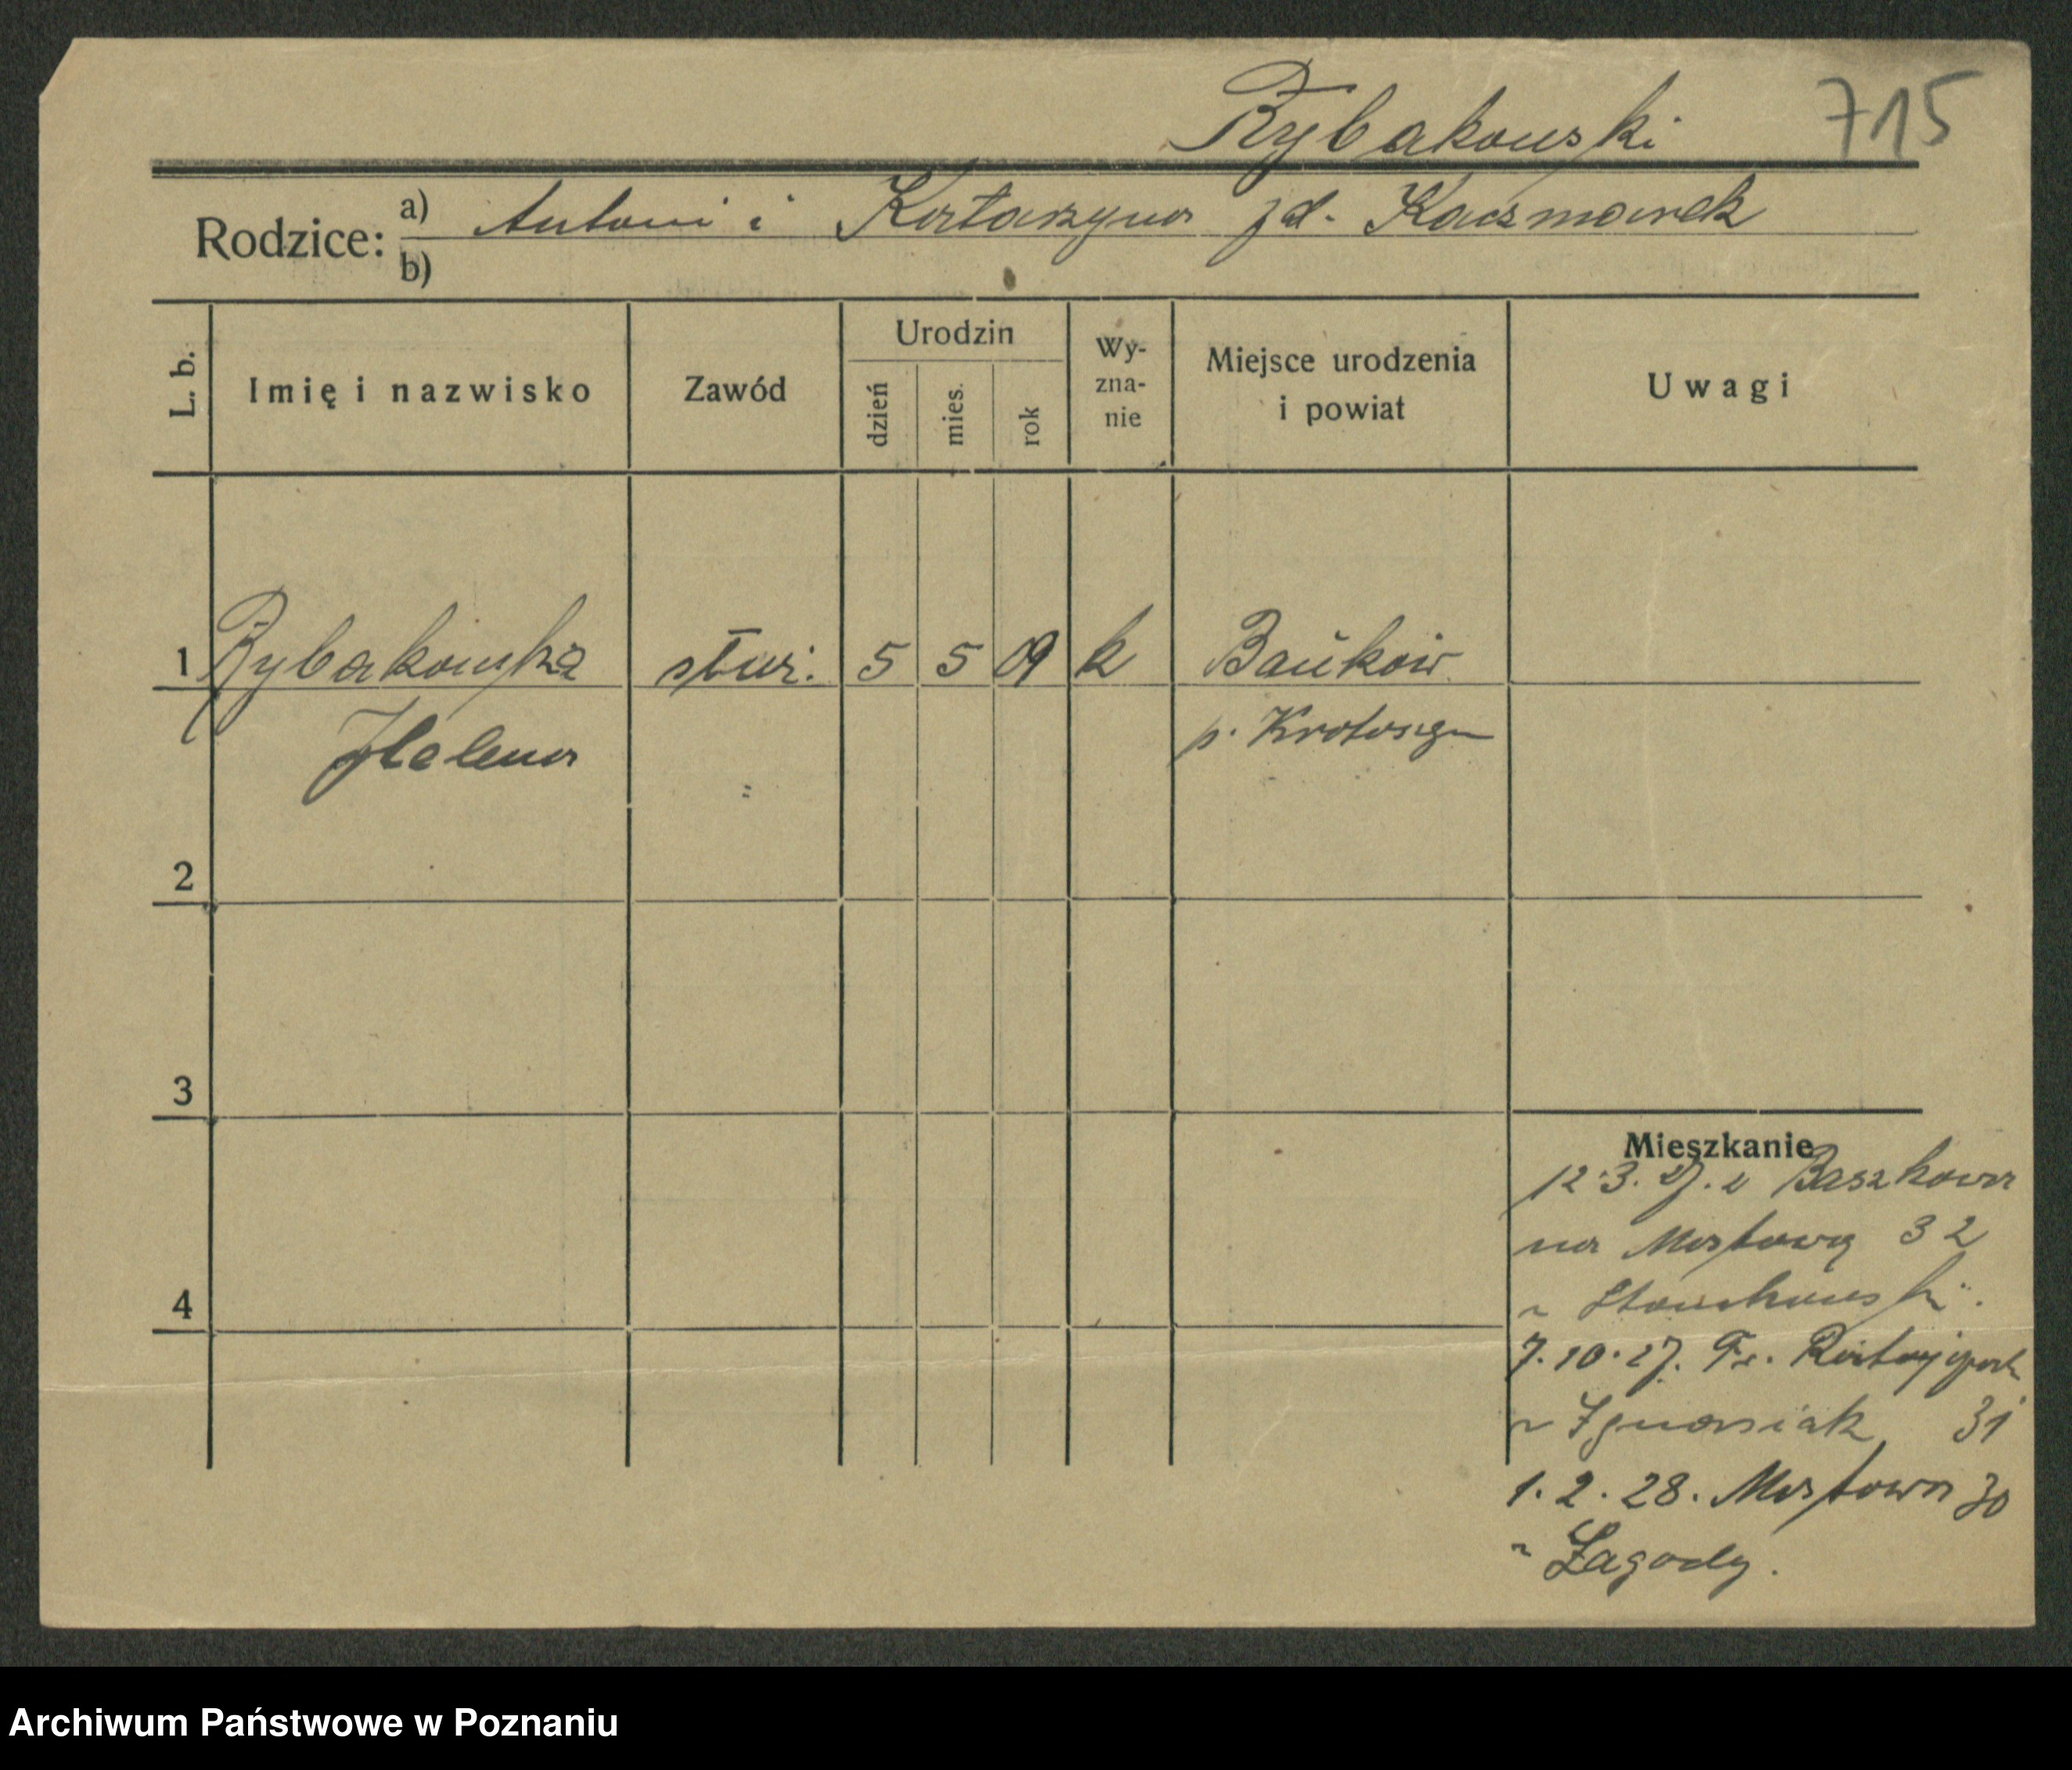 Rybakowski 715
Rodzice: a) Antoni i Katarzyna zd. Kaczmarek
b)
L. b. Imię i nazwisko Zawód Urodzin dzień mies. rok Wy-zna-nie Miejsce urodzenia i powiat Uwagi
1 Rybakowska służ. 5 5 09 k
Helena p. Krotoszyn
2
3
Mieszkanie
12.3.27. z Baszkowa
na Mostową 32
4
7.10.27. Fr. Ratajczaka
u Ignasiak 31
1.2.28. Mostowa 30
u Łagody.
Archiwum Państwowe w Poznaniu